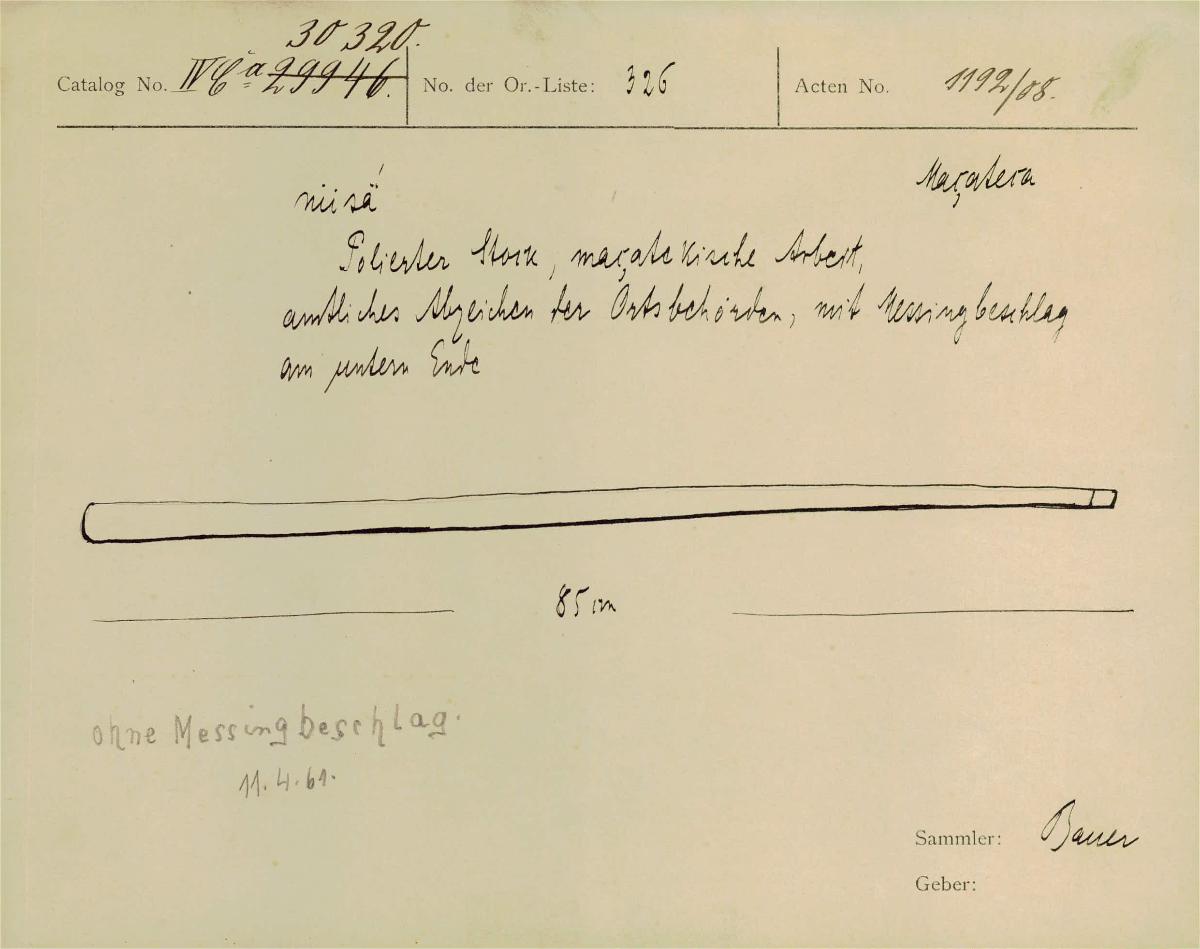 30 320.
Catalog No. IV Ca 29946. No. der Or.-Liste: 326 Acten No. 1192/08.
Maçateca
niisä́
Polierter Stock, maçatekische Arbeit,
amtliches Abzeichen der Ortsbehörden, mit Messingbeschlag
am untern Ende
85 cm
ohne Messingbeschlag.
11.4.61.
Sammler: Bauer
Geber: